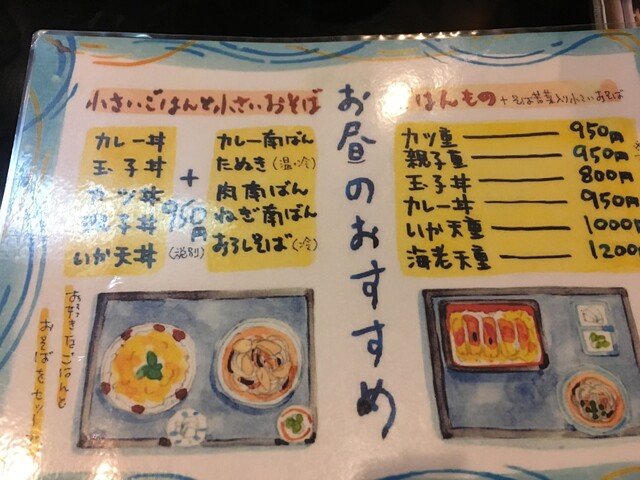 お昼のおすすめ
小さいごはんと小さいおそば
カレー丼
玉子丼
カツ丼
親子丼
いか天丼
+
950円
(税別)
カレー南ばん
たぬき(温・冷)
肉南ばん
ねぎ南ばん
おろしそば(冷)
お好きなごはんと
おそばをセット
はんもの
カツ重 950円
親子重 950円
玉子丼 800円
カレー丼 950円
いか天重 1000円
海老天重 1200円